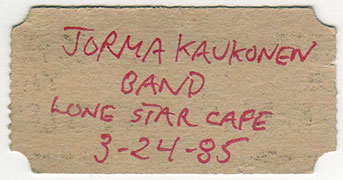 JORMA KAUKONEN
BAND
LONE STAR CAFE
3-24-85